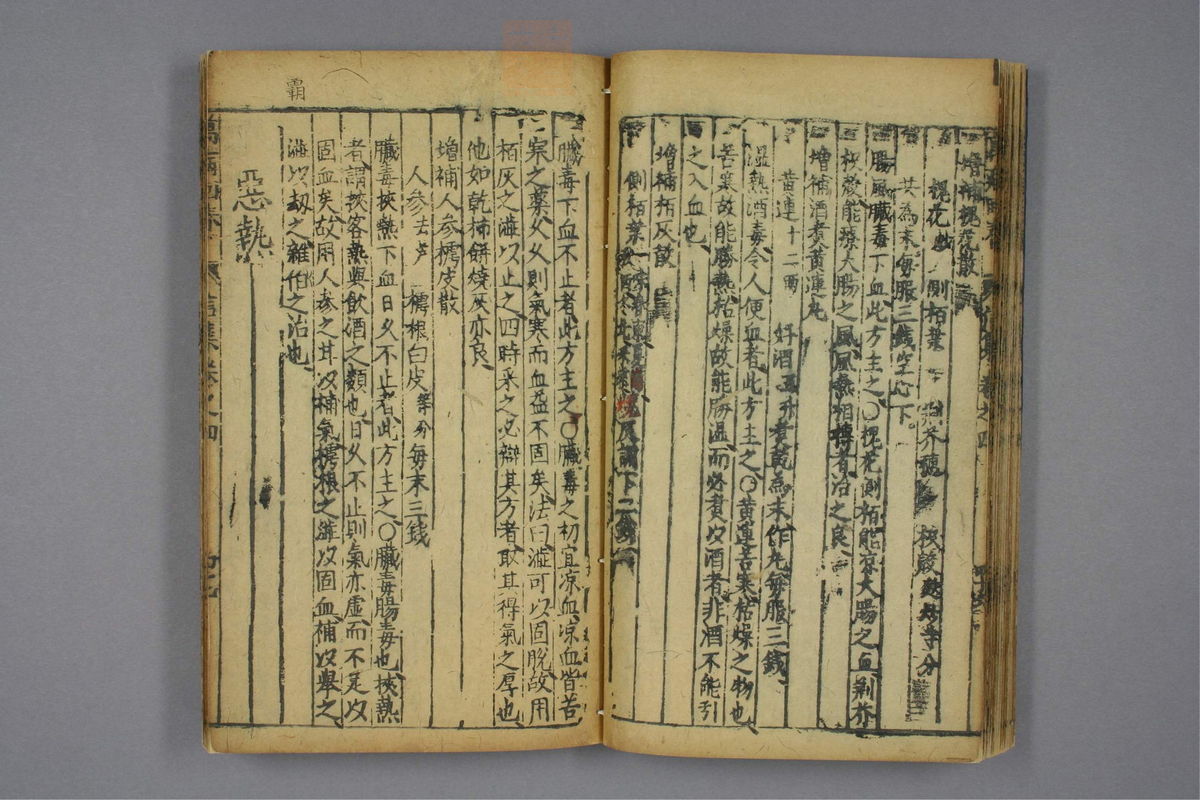 增補槐花散
槐花戱 側栢葉 荆芥穗 枳殻麩炒等分
共為末每服三錢空心下
腸風臟毒下血此方主之〇槐花側栢能凉大腸之血荆芥
枳殻能療大腸之風風熱相搏者治之良
增補酒煮黄連丸
黄連十二兩 好酒五升煮乾為末作丸每服三錢
濕熱酒毒令人便血者此方主之〇黄連苦寒枯燥之物也
苦寒故能勝熱枯燥故能勝濕而必煮以酒者非酒不能引
之入血也
增補栢灰散
側栢葉一味 燒灰調下二錢
臟毒下血不止者此方主之〇臟毒之初宜凉血凉血皆苦
寒之藥久久則氣寒而血益不固矣法曰澁可以固脫故用
栢灰之澁以止之四時采之必辯其方者取其得氣之厚也
他如乾柿餅燒灰亦良
增補人參樗皮散
人參去芦 樗根白皮等分每末三錢
臟毒挾熱下血日久不止者此方主之〇臟毒腸毒也挾熱
者謂挾客熱與飲酒之類也日久不止則氣亦虚而不足以
固血矣故用人參之甘以補氣樗根之澁以固血補以舉之
澁以劫之雜伯之治也
惡熱
霸